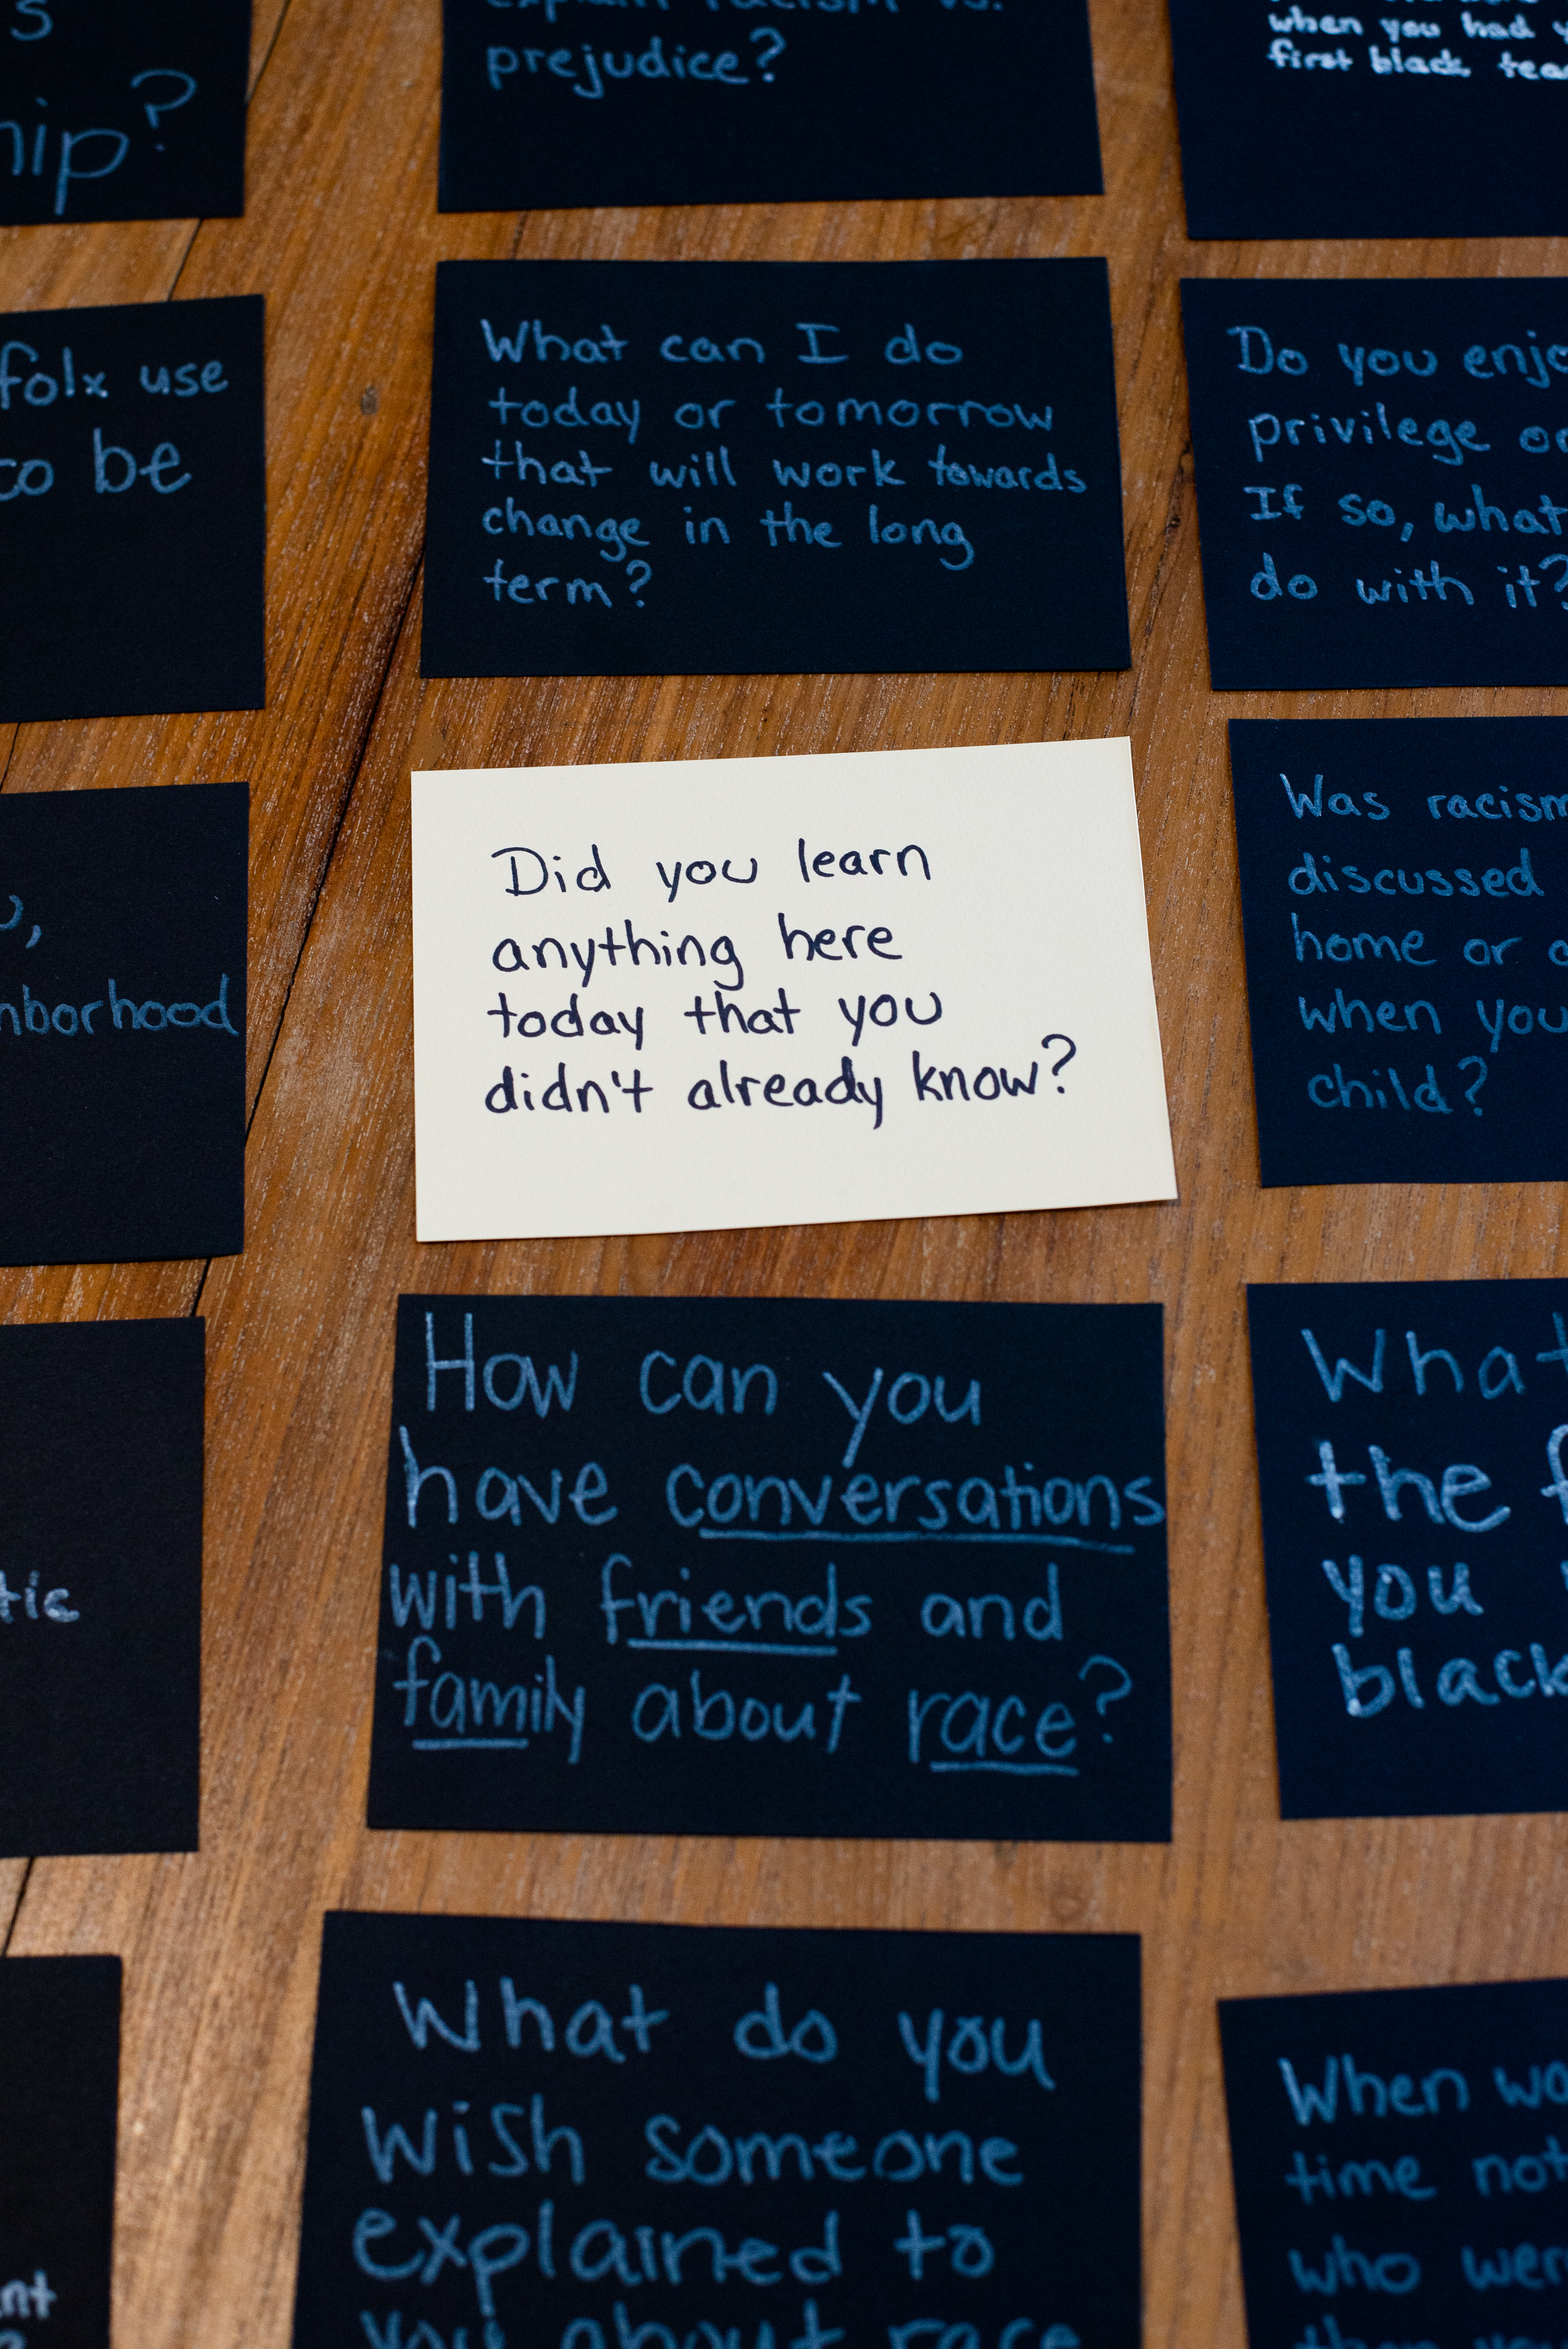 s
hip?
explain racism vs.
prejudice?
when you had y
first black tea
folx use
to be
What can I do
today or tomorrow
that will work towards
change in the long
term?
Do you enjo
privilege
If so, what
do with it?
nborhood
Did you learn
anything here
today that you
didn't already know?
Was racism
discussed
home or
when you
child?
tic
How can you
have conversations
with friends and
family about race?
What
the f
you
black
nt
What do you
wish someone
explained to
you about race
When wa
time not
who wer